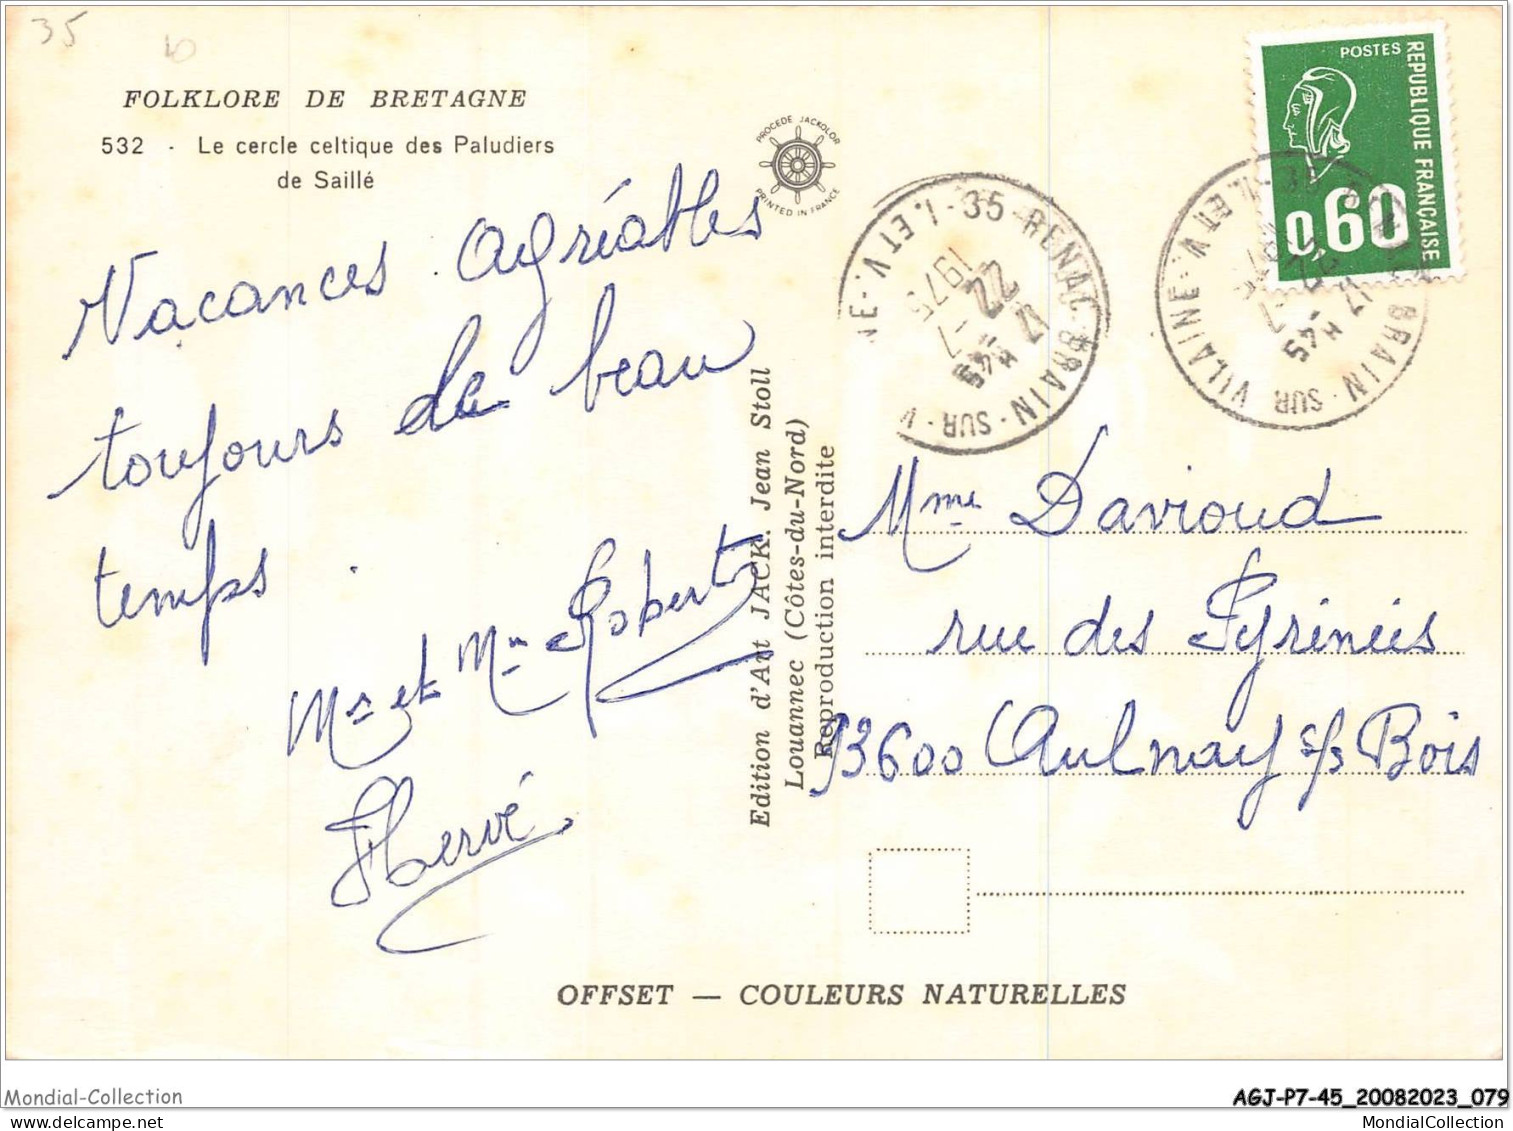 35
FOLKLORE DE BRETAGNE
532 - Le cercle celtique des Paludiers
de Saillé
PROCEDE JACKOLOR
PRINTED IN FRANCE
Vacances agréables
toujours du beau
temps.
Mr et Mme Robert
Hervé
Edition d'Art JACK. Jean Stoll
Louannec (Côtes-du-Nord)
Reproduction interdite
35 - RENAC - BRAIN - SUR - V NE - I. ET V. -
17 H 45
22 - 7
1975
BRAIN - SUR VILAINE - I. ET V.
17 H 45
POSTES
REPUBLIQUE FRANÇAISE
0,60
Mme Davioud
rue des Pyrénées
93600 Aulnay s/s Bois
OFFSET — COULEURS NATURELLES
Mondial-Collection
AGJ-P7-45_20082023_079
www.delcampe.net
MondialCollection